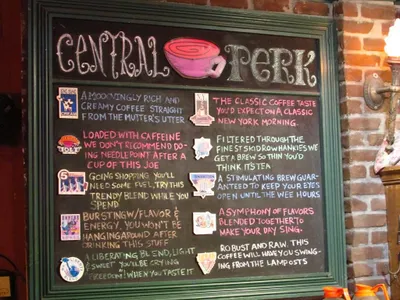 CENTRAL PERK
A MOOCHINGLY RICH AND
CREAMY COFFEE STRAIGHT
FROM THE MUTTER'S UTTER
LOADED WITH CAFFEINE
WE DON'T RECOMMEND DO-
ING NEEDLEPOINT AFTER A
CUP OF THIS JOE
GOING SHOPPING YOU'LL
NEED SOME FUEL, TRY THIS
TRENDY BLEND WHILE YOU
SPEND
BURSTING W/FLAVOR &
ENERGY. YOU WON'T BE
HANGING AROUND AFTER
DRINKING THIS STUFF
A LIBERATING BLEND, LIGHT
& SWEET YOU'LL BE CRYING
FREEDOM! WHEN YOU TASTE IT
THE CLASSIC COFFEE TASTE
YOU'D EXPECT ON A CLASSIC
NEW YORK MORNING.
FILTERED THROUGH THE
FINEST SNODROW HANKIES WE
GET A BREW SO THIN YOU'D
THINK IT'S TEA
A STIMULATING BREW GUAR-
ANTEED TO KEEP YOUR EYES
OPEN UNTIL THE WEE HOURS
A SYMPHONY OF FLAVORS
BLENDED TOGETHER TO
MAKE YOUR DAY SING.
ROBUST AND RAW. THIS
COFFEE WILL HAVE YOU SWING-
ING FROM THE LAMPOSTS